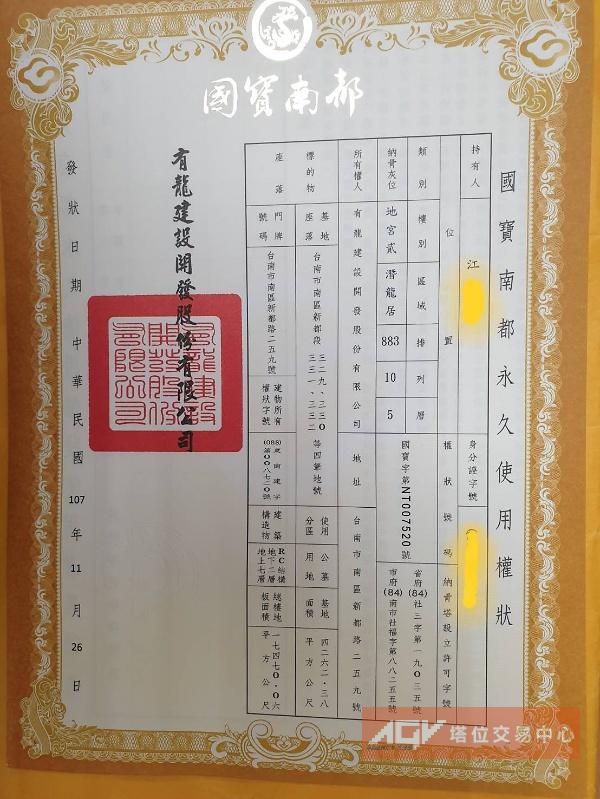 國寶南都
國寶南都永久使用權狀
持有人
江
身分證字號
位置
權狀號碼
納骨塔設立許可字號
類別
樓別
區域
排
列
層
國寶字第NT007520號
省府(84)社三字第一九〇三五號
市府(84)南市社福字第八八二五五號
納骨灰位
地宮貳
潛龍居
883
10
5
所有權人
有龍建設開發股份有限公司
地址
台南市南區新都路二五九號
標的物
座落
基地座落
台南市南區新都段
三二九、三三〇
三三一、三三二
等四筆地號
使用分區
公墓用地
基地面積
四二六二.三八
平方公尺
門牌號碼
台南市南區新都路二五九號
建物所有權狀字號
(088)東南建字
第〇〇八七二〇號
建築構造物
RC結構
地下二層
地上七層
總樓地板面積
一七四七〇.〇六
平方公尺
有龍建設開發股份有限公司
有龍建設開發股份有限公司
發狀日期 中華民國 107 年 11 月 26 日
AGV 塔位交易中心